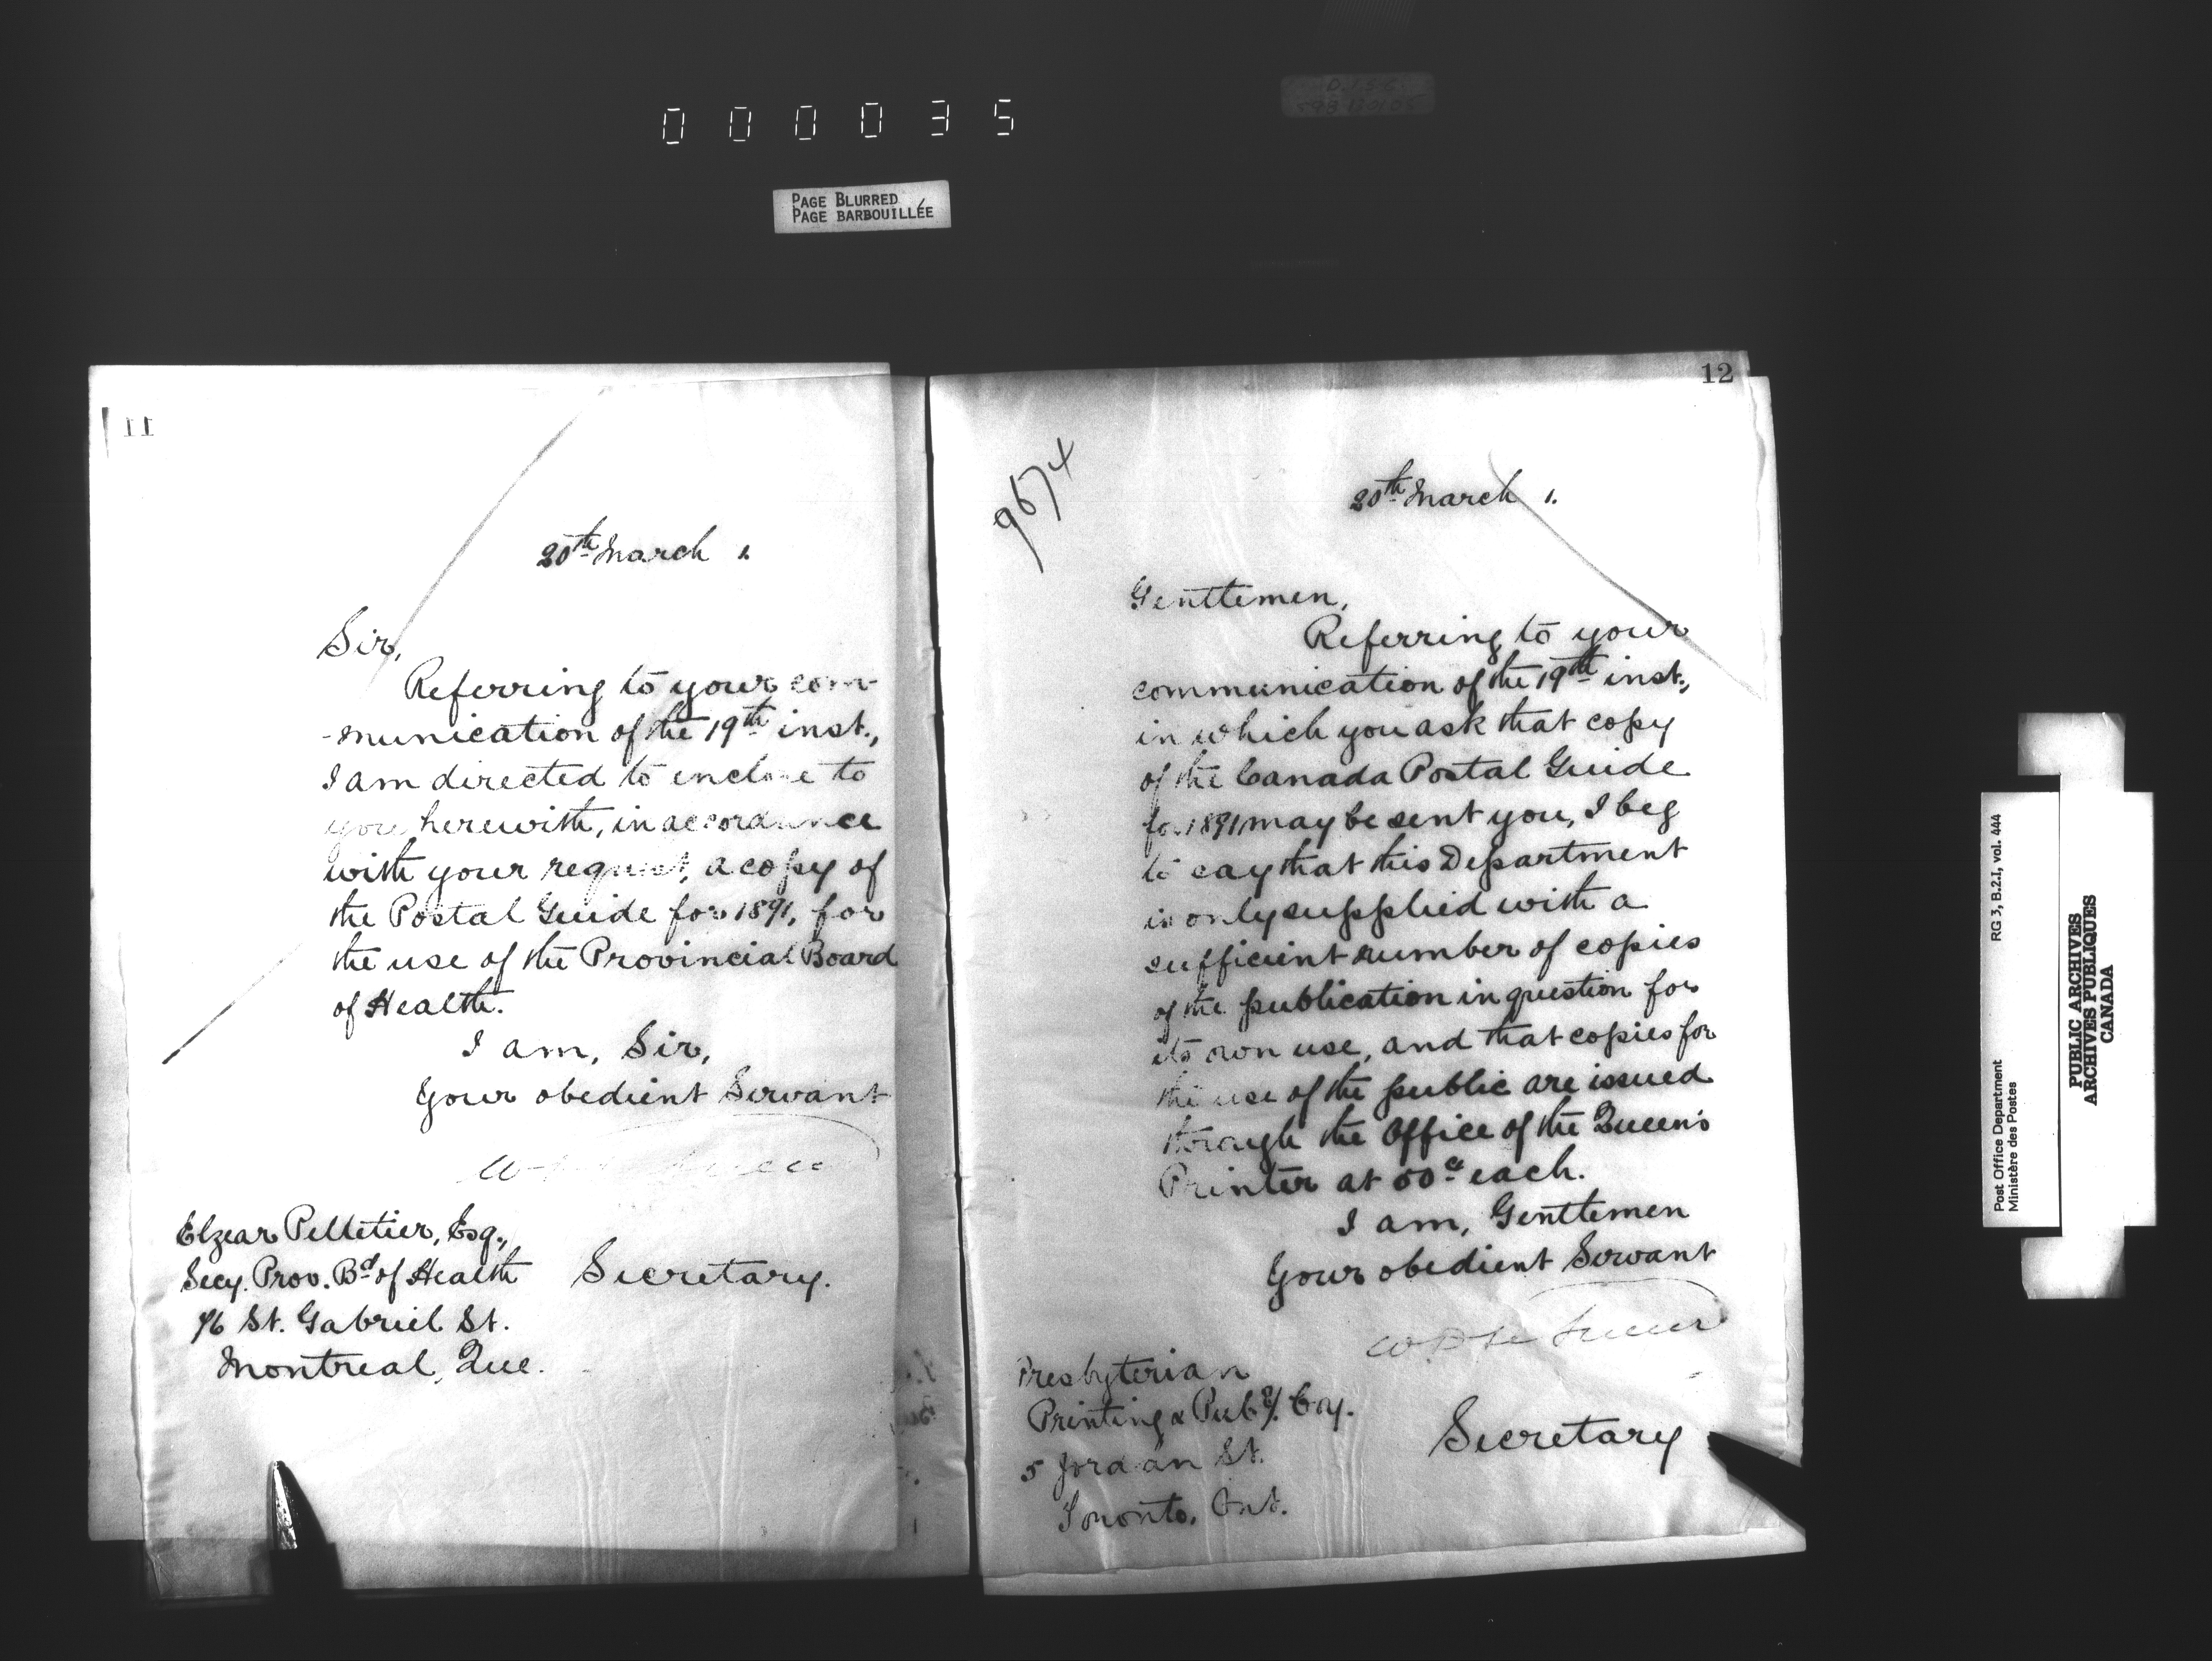 000035
PAGE BLURRED
PAGE BARBOUILLÉE
11
20th March 1.
Sir,
Referring to your com-
-munication of the 19th inst.,
I am directed to enclose to
you herewith, in accordance
with your request, a copy of
the Postal Guide for 1891, for
the use of the Provincial Board
of Health.
I am, Sir,
Your obedient Servant
Elzear Pelletier, Esq.,
Secy. Prov. Bd of Health
Secretary.
76 St. Gabriel St.
Montreal, Que.
12
9674
20th March 1.
Gentlemen,
Referring to your
communication of the 19th inst.,
in which you ask that copy
of the Canada Postal Guide
for 1891 may be sent you, I beg
to say that this Department
is only supplied with a
sufficient number of copies
of the publication in question for
its own use, and that copies for
the use of the public are issued
through the Office of the Queen's
Printer at 50c each.
I am, Gentlemen
Your obedient Servant
W. D. Le Sueur
Presbyterian
Printing & Pub'g. Coy.
Secretary
5 Jordan St.
Toronto, Ont.
RG 3, B.2.1, vol. 444
Post Office Department
Ministère des Postes
PUBLIC ARCHIVES
ARCHIVES PUBLIQUES
CANADA